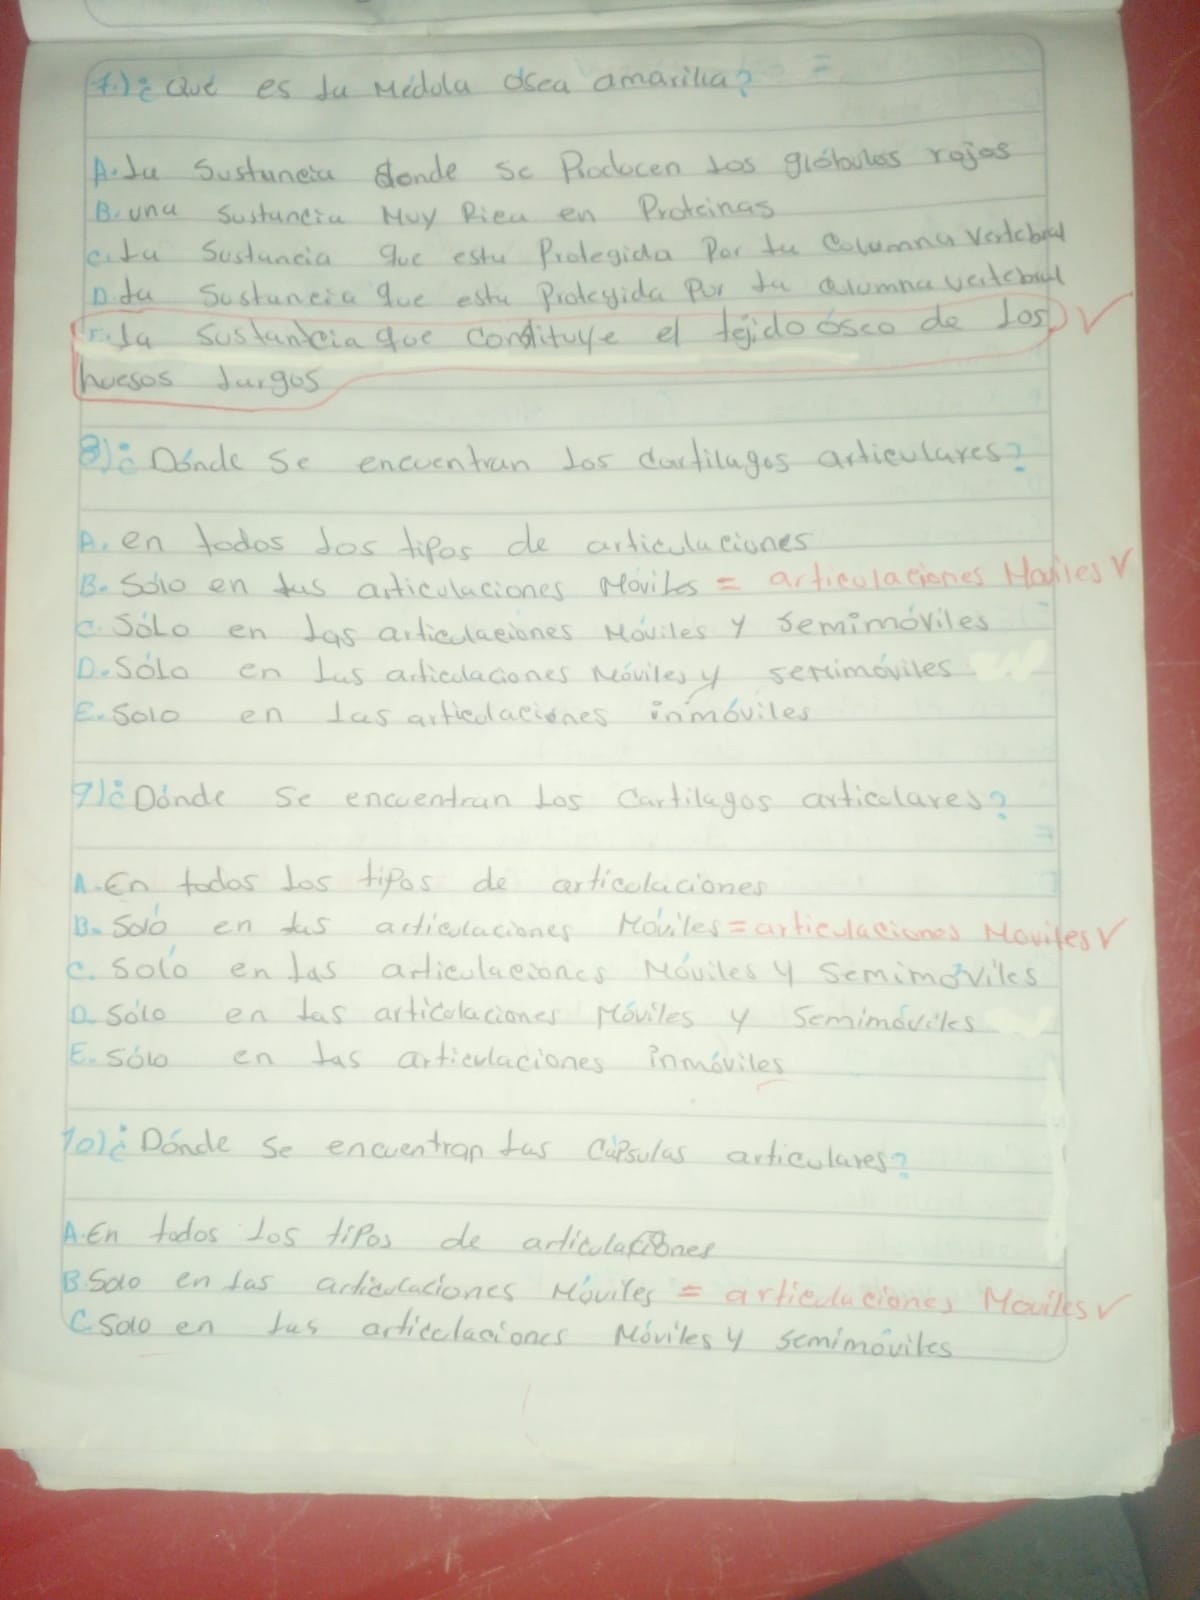 7.) ¿Qué es la Médula ósea amarilla? =
A. La Sustancia donde se Producen los glóbulos rojos
B. una Sustancia Muy Rica en Proteinas
C. La Sustancia que esta Protegida Por la Columna Vertebral
D. La Sustancia que esta Protegida Por la Columna vertebral
La Sustancia que constituye el tejido óseo de los
huesos largos
8) ¿Dónde se encuentran los cartilagos articulares?
A. en todos los tipos de articulaciones
B. Sólo en las articulaciones Móviles = articulaciones Moviles
C. Sólo en las articulaciones Móviles y semimóviles
D. Sólo en las articulaciones Móviles y semimóviles
E. Solo en las articulaciones inmóviles
9) ¿Dónde se encuentran los cartilagos articolares?
A. En todos los tipos de articolaciones
B. Soló en las articulaciones Móviles = articulaciones Moviles
C. Soló en las articulaciones Móviles y Semimóviles
D. Sólo en las articolaciones Móviles y Semimóviles
E. Sólo en las articulaciones inmóviles
10) ¿Dónde se encuentran las cápsulas articulares?
A. En todos los tipos de articulaciones
B. Solo en las articulaciones Móviles = articulaciones Moviles
C. Solo en las articulaciones Móviles y semimóviles